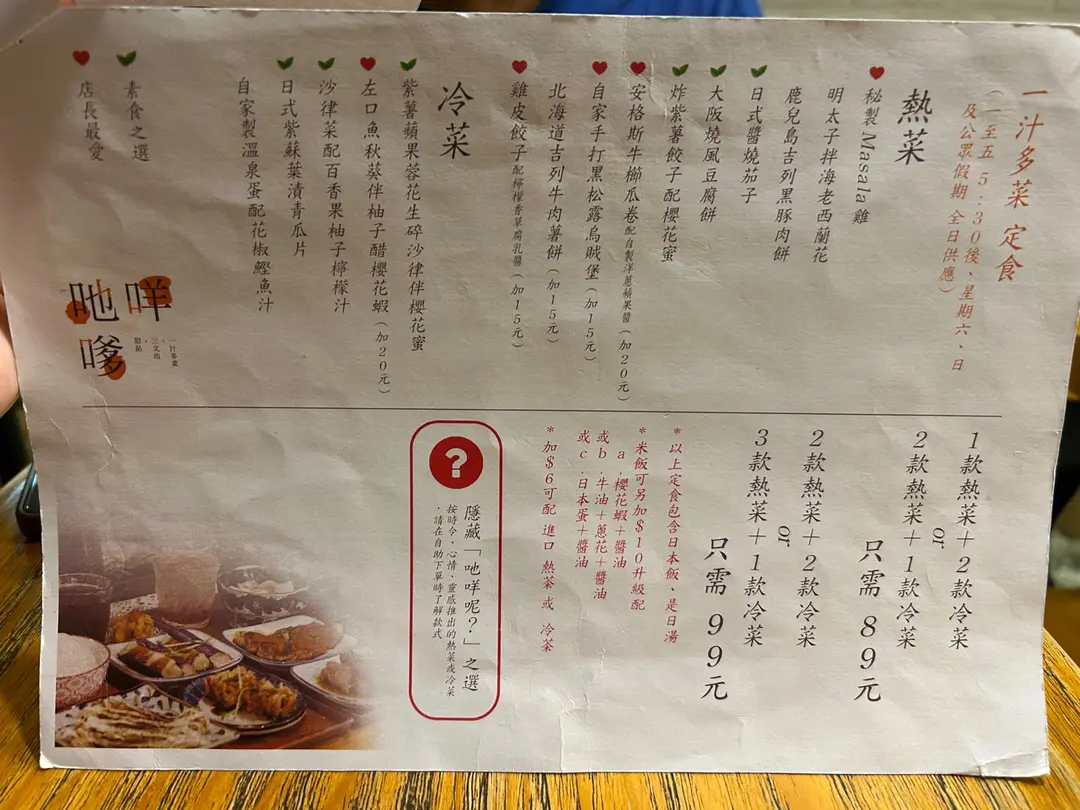 一汁多菜 定食
(一至五 5:30後、星期六、日
及公眾假期 全日供應)
熱菜
秘製 Masala 雞
明太子拌海老西蘭花
鹿兒島吉列黑豚肉餅
日式醬燒茄子
大阪燒風豆腐餅
炸紫薯餃子配櫻花蜜
安格斯牛櫛瓜卷配自製洋蔥蘋果醬(加20元)
自家手打黑松露烏賊堡(加15元)
北海道吉列牛肉薯餅(加15元)
雞皮餃子配檸檬香草腐乳醬(加15元)
冷菜
紫薯蘋果蓉花生碎沙律伴櫻花蜜
左口魚秋葵伴柚子醋櫻花蝦(加20元)
沙律菜配百香果柚子檸檬汁
日式紫蘇葉漬青瓜片
自家製溫泉蛋配花椒鰹魚汁
素食之選
店長最愛
咩
吔
嗲
一汁多菜
、三文治
、甜品
1款熱菜+2款冷菜
or
2款熱菜+1款冷菜
只需 89元
2款熱菜+2款冷菜
or
3款熱菜+1款冷菜
只需 99元
*以上定食包含日本飯、是日湯
*米飯可另加$10升級配
a.櫻花蝦+醬油
或b.牛油+蔥花+醬油
或c.日本蛋+醬油
*加$6可配 進口 熱茶 或 冷茶
?
隱藏「吔咩呢?」之選
按時令、心情、靈感推出的熱菜或冷菜
，請在自助下單時了解款式。